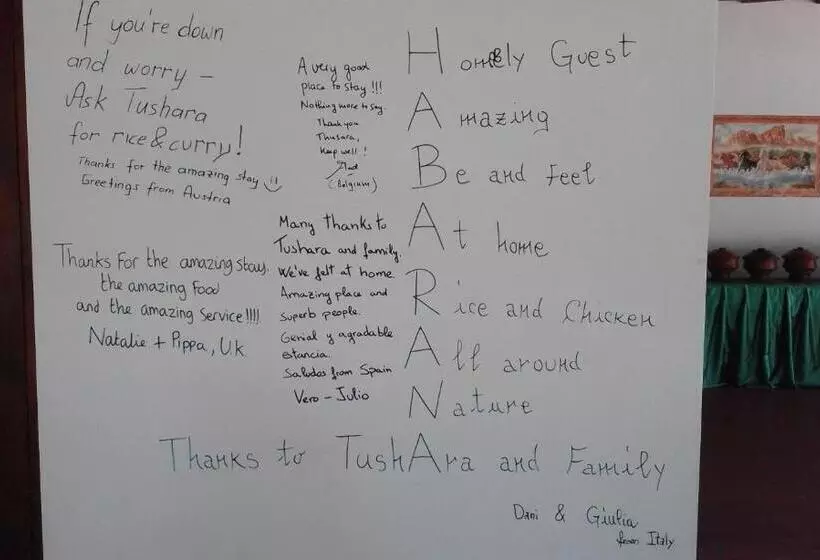 If you're down
and worry –
Ask Tushara
for rice & curry!
Thanks for the amazing stay
Greetings from Austria
A very good
place to stay !!!
Nothing more to say.
Thank you
Thusara,
Keep well !
(Belgium)
Thanks for the amazing stay,
the amazing food
and the amazing service!!!!
Natalie + Pippa, UK
Many thanks to
Tushara and family.
We've felt at home.
Amazing place and
superb people.
Genial y agradable
estancia.
Saludos from Spain
Vero - Julio
Homely Guest
Amazing
Be and Feel
At home
Rice and Chicken
All around
Nature
Thanks to TushAra and Family
Dani & Giulia
from Italy